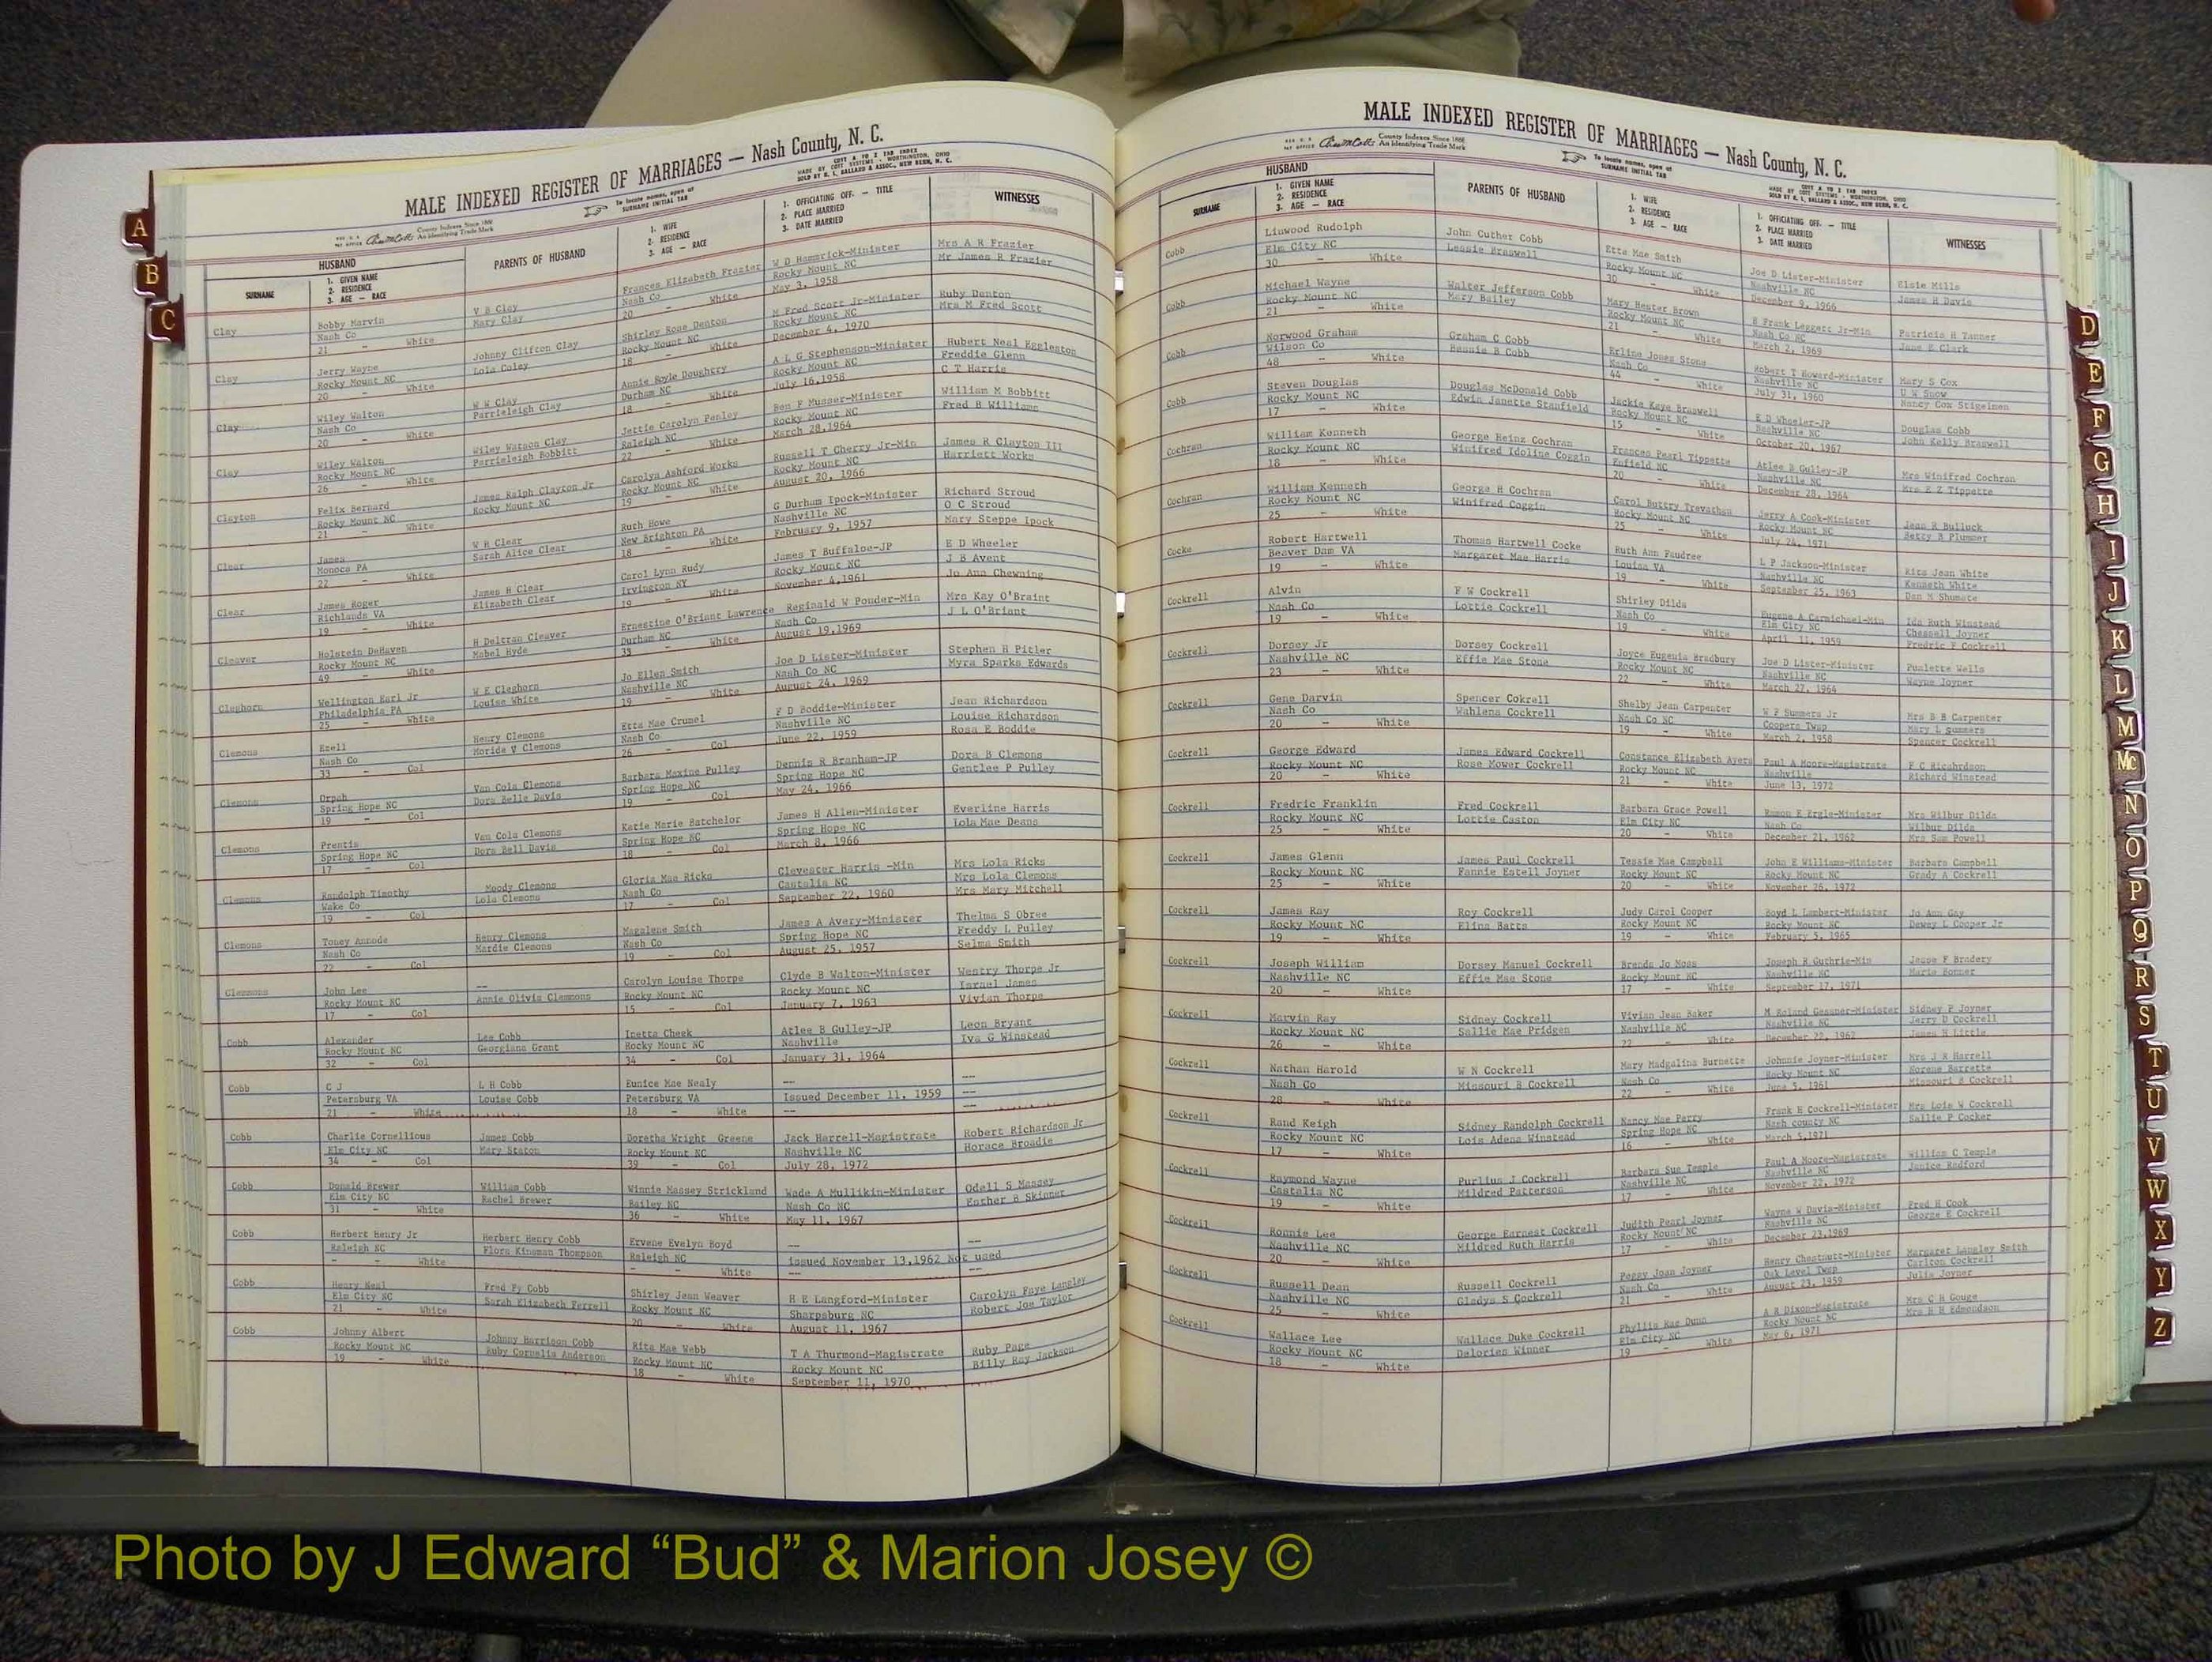 MALE INDEXED REGISTER OF MARRIAGES — Nash County, N. C.
County Indexes Since 1888
An Identifying Trade Mark
To locate names, open at
SURNAME INITIAL TAB
COTT A TO Z TAB INDEX
MADE BY COTT SYSTEMS - WORTHINGTON, OHIO
SOLD BY R. L. BALLARD & ASSOC., NEW BERN, N. C.
HUSBAND
SURNAME
1. GIVEN NAME
2. RESIDENCE
3. AGE — RACE
PARENTS OF HUSBAND
1. WIFE
2. RESIDENCE
3. AGE — RACE
1. OFFICIATING OFF. - TITLE
2. PLACE MARRIED
3. DATE MARRIED
WITNESSES
Clay Bobby Marvin V B Clay Frances Elizabeth Frazier W D Hammrick-Minister Mrs A R Frazier
Nash Co Mary Clay Nash Co Rocky Mount NC Mr James R Frazier
21 - White 20 - White May 3, 1958
Clay Jerry Wayne Johnny Clifton Clay Shirley Rose Denton M Fred Scott Jr-Minister Ruby Denton
Rocky Mount NC Lola Coley Rocky Mount NC Rocky Mount NC Mrs M Fred Scott
20 - White 18 - White December 4, 1970
Clay Wiley Walton W W Clay Annie Royle Doughtry A L G Stephenson-Minister Hubert Neal Eggleston
Nash Co Parrieleigh Clay Durham NC Rocky Mount NC Freddie Glenn
20 - White 18 - White July 16,1958 C T Harris
Clay Wiley Walton Wiley Watson Clay Jettie Carolyn Penley Ben F Musser-Minister William M Bobbitt
Rocky Mount NC Parrieleigh Bobbitt Raleigh NC Rocky Mount NC Fred B Williams
26 - White 22 - White March 28,1964
Clayton Felix Bernard James Ralph Clayton Jr Carolyn Ashford Works Russell T Cherry Jr-Min James R Clayton III
Rocky Mount NC Rocky Mount NC Rocky Mount NC Rocky Mount NC Harriett Works
21 - White 19 - White August 20, 1966
Clear James W R Clear Ruth Howe G Durham Ipock-Minister Richard Stroud
Monoca PA Sarah Alice Clear New Brighton PA Nashville NC O C Stroud
22 - White 18 - White February 9, 1957 Mary Steppe Ipock
Clear James Roger James H Clear Carol Lynn Rudy James T Buffaloe-JP E D Wheeler
Richlands VA Elizabeth Clear Irvington NY Rocky Mount NC J B Avent
19 - White 19 - White November 4,1961 Jo Ann Chewning
Cleaver Holstein DeHaven H Deltran Cleaver Ernestine O'Briant Lawrence Reginald W Ponder-Min Mrs Kay O'Braint
Rocky Mount NC Mabel Hyde Durham NC Nash Co J L O'Briant
49 - White 33 - White August 19,1969
Cleghorn Wellington Earl Jr W E Cleghorn Jo Ellen Smith Joe D Lister-Minister Stephen H Pitler
Philadelphia PA Louise White Nashville NC Nash Co NC Myra Sparks Edwards
25 - White 19 - White August 24, 1969
Clemons Ezell Henry Clemons Etta Mae Crumel F D Boddie-Minister Jean Richardson
Nash Co Moride V Clemons Nash Co Nashville NC Louise Richardson
33 - Col 26 - Col June 22, 1959 Rosa E Boddie
Clemons Orpah Van Cola Clemons Barbara Maxine Pulley Dennis R Branham-JP Dora B Clemons
Spring Hope NC Dora Belle Davis Spring Hope NC Spring Hope NC Gentlee P Pulley
19 - Col 19 - Col May 24, 1966
Clemons Prentis Van Cola Clemons Katie Marie Batchelor James H Allen-Minister Everline Harris
Spring Hope NC Dora Bell Davis Spring Hope NC Spring Hope NC Lola Mae Deans
17 - Col 18 - Col March 8, 1966
Clemons Randolph Timothy Moody Clemons Gloria Mae Ricks Clevester Harris -Min Mrs Lola Ricks
Wake Co Lola Clemons Nash Co Castalia NC Mrs Lola Clemons
19 - Col 17 - Col September 22, 1960 Mrs Mary Mitchell
Clemons Toney Annode Henry Clemons Magalene Smith James A Avery-Minister Thelma S Obree
Nash Co Mardie Clemons Nash Co Spring Hope NC Freddy L Pulley
22 - Col 19 - Col August 25, 1957 Selma Smith
Clemmons John Lee -- Carolyn Louise Thorpe Clyde B Walton-Minister Wentry Thorpe Jr
Rocky Mount NC Annie Olivia Clemmons Rocky Mount NC Rocky Mount NC Israel James
17 - Col 15 - Col January 7, 1963 Vivian Thorpe
Cobb Alexander Lee Cobb Inetta Cheek Atlee B Gulley-JP Leon Bryant
Rocky Mount NC Georgiana Grant Rocky Mount NC Nashville Iva G Winstead
32 - Col 34 - Col January 31, 1964
Cobb C J L H Cobb Eunice Mae Nealy -- --
Petersburg VA Louise Cobb Petersburg VA Issued December 11, 1959 --
21 - White 18 - White -- --
Cobb Charlie Cornellious James Cobb Doretha Wright Greene Jack Harrell-Magistrate Robert Richardson Jr
Elm City NC Mary Staton Rocky Mount NC Nashville NC Horace Broadie
34 - Col 39 - Col July 28, 1972
Cobb Donald Brewer William Cobb Winnie Massey Strickland Wade A Mullikin-Minister Odell S Massey
Elm City NC Rachel Brewer Bailey NC Nash Co NC Esther B Skinner
31 - White 36 - White May 11, 1967
Cobb Herbert Henry Jr Herbert Henry Cobb Ervene Evelyn Boyd -- --
Raleigh NC Flora Kinsman Thompson Raleigh NC issued November 13,1962 Not used
- - White - - White -- --
Cobb Henry Neal Fred Fy Cobb Shirley Jean Weaver H E Langford-Minister Carolyn Faye Langley
Elm City NC Sarah Elizabeth Ferrell Rocky Mount NC Sharpsburg NC Robert Joe Taylor
21 - White 20 - White August 11, 1967
Cobb Johnny Albert Johnny Harrison Cobb Rita Mae Webb T A Thurmond-Magistrate Ruby Page
Rocky Mount NC Ruby Cornelia Anderson Rocky Mount NC Rocky Mount NC Billy Ray Jackson
19 - White 18 - White September 11, 1970
MALE INDEXED REGISTER OF MARRIAGES — Nash County, N. C.
County Indexes Since 1888
An Identifying Trade Mark
To locate names, open at
SURNAME INITIAL TAB
COTT A TO Z TAB INDEX
MADE BY COTT SYSTEMS - WORTHINGTON, OHIO
SOLD BY R. L. BALLARD & ASSOC., NEW BERN, N. C.
HUSBAND
SURNAME
1. GIVEN NAME
2. RESIDENCE
3. AGE — RACE
PARENTS OF HUSBAND
1. WIFE
2. RESIDENCE
3. AGE — RACE
1. OFFICIATING OFF. - TITLE
2. PLACE MARRIED
3. DATE MARRIED
WITNESSES
Cobb Linwood Rudolph John Cuther Cobb Etta Mae Smith Joe D Lister-Minister Elsie Mills
Elm City NC Lessie Braswell Rocky Mount NC Nashville NC James H Davis
30 - White 30 - White December 9, 1966
Cobb Michael Wayne Walter Jefferson Cobb Mary Hester Brown B Frank Leggett Jr-Min Patricia H Tanner
Rocky Mount NC Mary Bailey Rocky Mount NC Nash Co NC Jane E Clark
21 - White 21 - White March 2, 1969
Cobb Norwood Graham Graham C Cobb Erline Jones Stone Robert T Howard-Minister Mary S Cox
Wilson Co Bessie B Cobb Nash Co Nashville NC U W Snow
48 - White 44 - White July 31, 1960 Nancy Cox Stigelmen
Cobb Steven Douglas Douglas McDonald Cobb Jackie Kaye Braswell E D Wheeler-JP Douglas Cobb
Rocky Mount NC Edwin Janette Stanfield Rocky Mount NC Nashville NC John Kelly Braswell
17 - White 15 - White October 20, 1967
Cochran William Kenneth George Heinz Cochran Frances Pearl Tippette Atlee B Gulley-JP Mrs Winifred Cochran
Rocky Mount NC Winifred Idoline Coggin Enfield NC Nashville NC Mrs E Z Tippette
18 - White 20 - White December 28, 1964
Cochran William Kenneth George H Cochran Carol Buttry Trevathan Jerry A Cook-Minister Jean R Bulluck
Rocky Mount NC Winifred Coggin Rocky Mount NC Rocky Mount NC Betty B Plummer
25 - White 25 - White July 24, 1971
Cocke Robert Hartwell Thomas Hartwell Cocke Ruth Ann Faudree L P Jackson-Minister Rita Jean White
Beaver Dam VA Margaret Mae Harris Louisa VA Nashville NC Kenneth White
19 - White 19 - White September 25, 1963 Dan M Shumate
Cockrell Alvin F W Cockrell Shirley Dilda Eugene A Carmichael-Min Ida Ruth Winstead
Nash Co Lottie Cockrell Nash Co Elm City NC Chessell Joyner
19 - White 19 - White April 11, 1959 Fredric F Cockrell
Cockrell Dorsey Jr Dorsey Cockrell Joyce Eugenia Bradbury Joe D Lister-Minister Paulette Wells
Nashville NC Effie Mae Stone Rocky Mount NC Nashville NC Wayne Joyner
23 - White 22 - White March 27, 1964
Cockrell Gene Darvin Spencer Cokrell Shelby Jean Carpenter W F Summers Jr Mrs B B Carpenter
Nash Co Wahlena Cockrell Nash Co NC Coopers Twsp Mary L Summers
20 - White 19 - White March 2, 1958 Spencer Cockrell
Cockrell George Edward James Edward Cockrell Constance Elizabeth Ayers Paul A Moore-Magistrate F C Ricahrdson
Rocky Mount NC Rose Mower Cockrell Rocky Mount NC Nashville Richard Winstead
20 - White 21 - White June 13, 1972
Cockrell Fredric Franklin Fred Cockrell Barbara Grace Powell Ramon E Ergle-Minister Mrs Wilbur Dilda
Rocky Mount NC Lottie Caston Elm City NC Nash Co Wilbur Dilda
25 - White 20 - White December 21, 1962 Mrs Sam Powell
Cockrell James Glenn James Paul Cockrell Tessie Mae Campbell John E Williams-Minister Barbara Campbell
Rocky Mount NC Fannie Estell Joyner Rocky Mount NC Rocky Mount NC Grady A Cockrell
25 - White 20 - White November 26, 1972
Cockrell James Ray Roy Cockrell Judy Carol Cooper Boyd L Lambert-Minister Jo Ann Gay
Rocky Mount NC Elina Batts Rocky Mount NC Rocky Mount NC Dewey L Cooper Jr
19 - White 19 - White February 5, 1965
Cockrell Joseph William Dorsey Manuel Cockrell Brenda Jo Moss Joseph R Guthrie-Min Jesse F Bradery
Nashville NC Effie Mae Stone Rocky Mount NC Nashville NC Marie Bonner
20 - White 17 - White September 17, 1971
Cockrell Marvin Ray Sidney Cockrell Vivian Jean Baker M Roland Gessner-Minister Sidney P Joyner
Rocky Mount NC Sallie Mae Pridgen Nashville NC Nashville NC Jerry D Cockrell
26 - White 22 - White December 22, 1962 James H Little
Cockrell Nathan Harold W N Cockrell Mary Madgalina Burnette Johnnie Joyner-Minister Mrs J R Harrell
Nash Co Missouri B Cockrell Nash Co Rocky Mount NC Norene Barrette
28 - White 22 - White June 5, 1961 Missouri B Cockrell
Cockrell Rand Keigh Sidney Randolph Cockrell Nancy Mae Parry Frank E Cockrell-Minister Mrs Lois W Cockrell
Rocky Mount NC Lois Adena Winstead Spring Hope NC Nash county NC Sallie P Cocker
17 - White 16 - White March 5,1971
Cockrell Raymond Wayne Purlius J Cockrell Barbara Sue Temple Paul A Moore-Magistrate William C Temple
Castalia NC Mildred Patterson Nashville NC Nashville NC Janice Radford
19 - White 17 - White November 22, 1972
Cockrell Ronnie Lee George Earnest Cockrell Judith Pearl Joyner Wayne W Davis-Minister Fred H Cook
Nashville NC Mildred Ruth Harris Rocky Mount NC Nashville NC George E Cockrell
20 - White 17 - White December 23,1969
Cockrell Russell Dean Russell Cockrell Peggy Joan Joyner Henry Chestnutt-Minister Margaret Langley Smith
Nashville NC Gladys S Cockrell Nash Co Oak Level Twsp Carlton Cockrell
25 - White 21 - White August 23, 1959 Julia Joyner
Cockrell Wallace Lee Wallace Duke Cockrell Phyllis Rae Dunn A R Dixon-Magistrate Mrs C H Gouge
Rocky Mount NC Delories Winner Elm City NC Rocky Mount NC Mrs H H Edmondson
18 - White 19 - White May 6, 1971
A
B
C
D
E
F
G
H
I
J
K
L
M
Mc
N
O
P
Q
R
S
T
U
V
W
X
Y
Z
Photo by J Edward “Bud” & Marion Josey ©